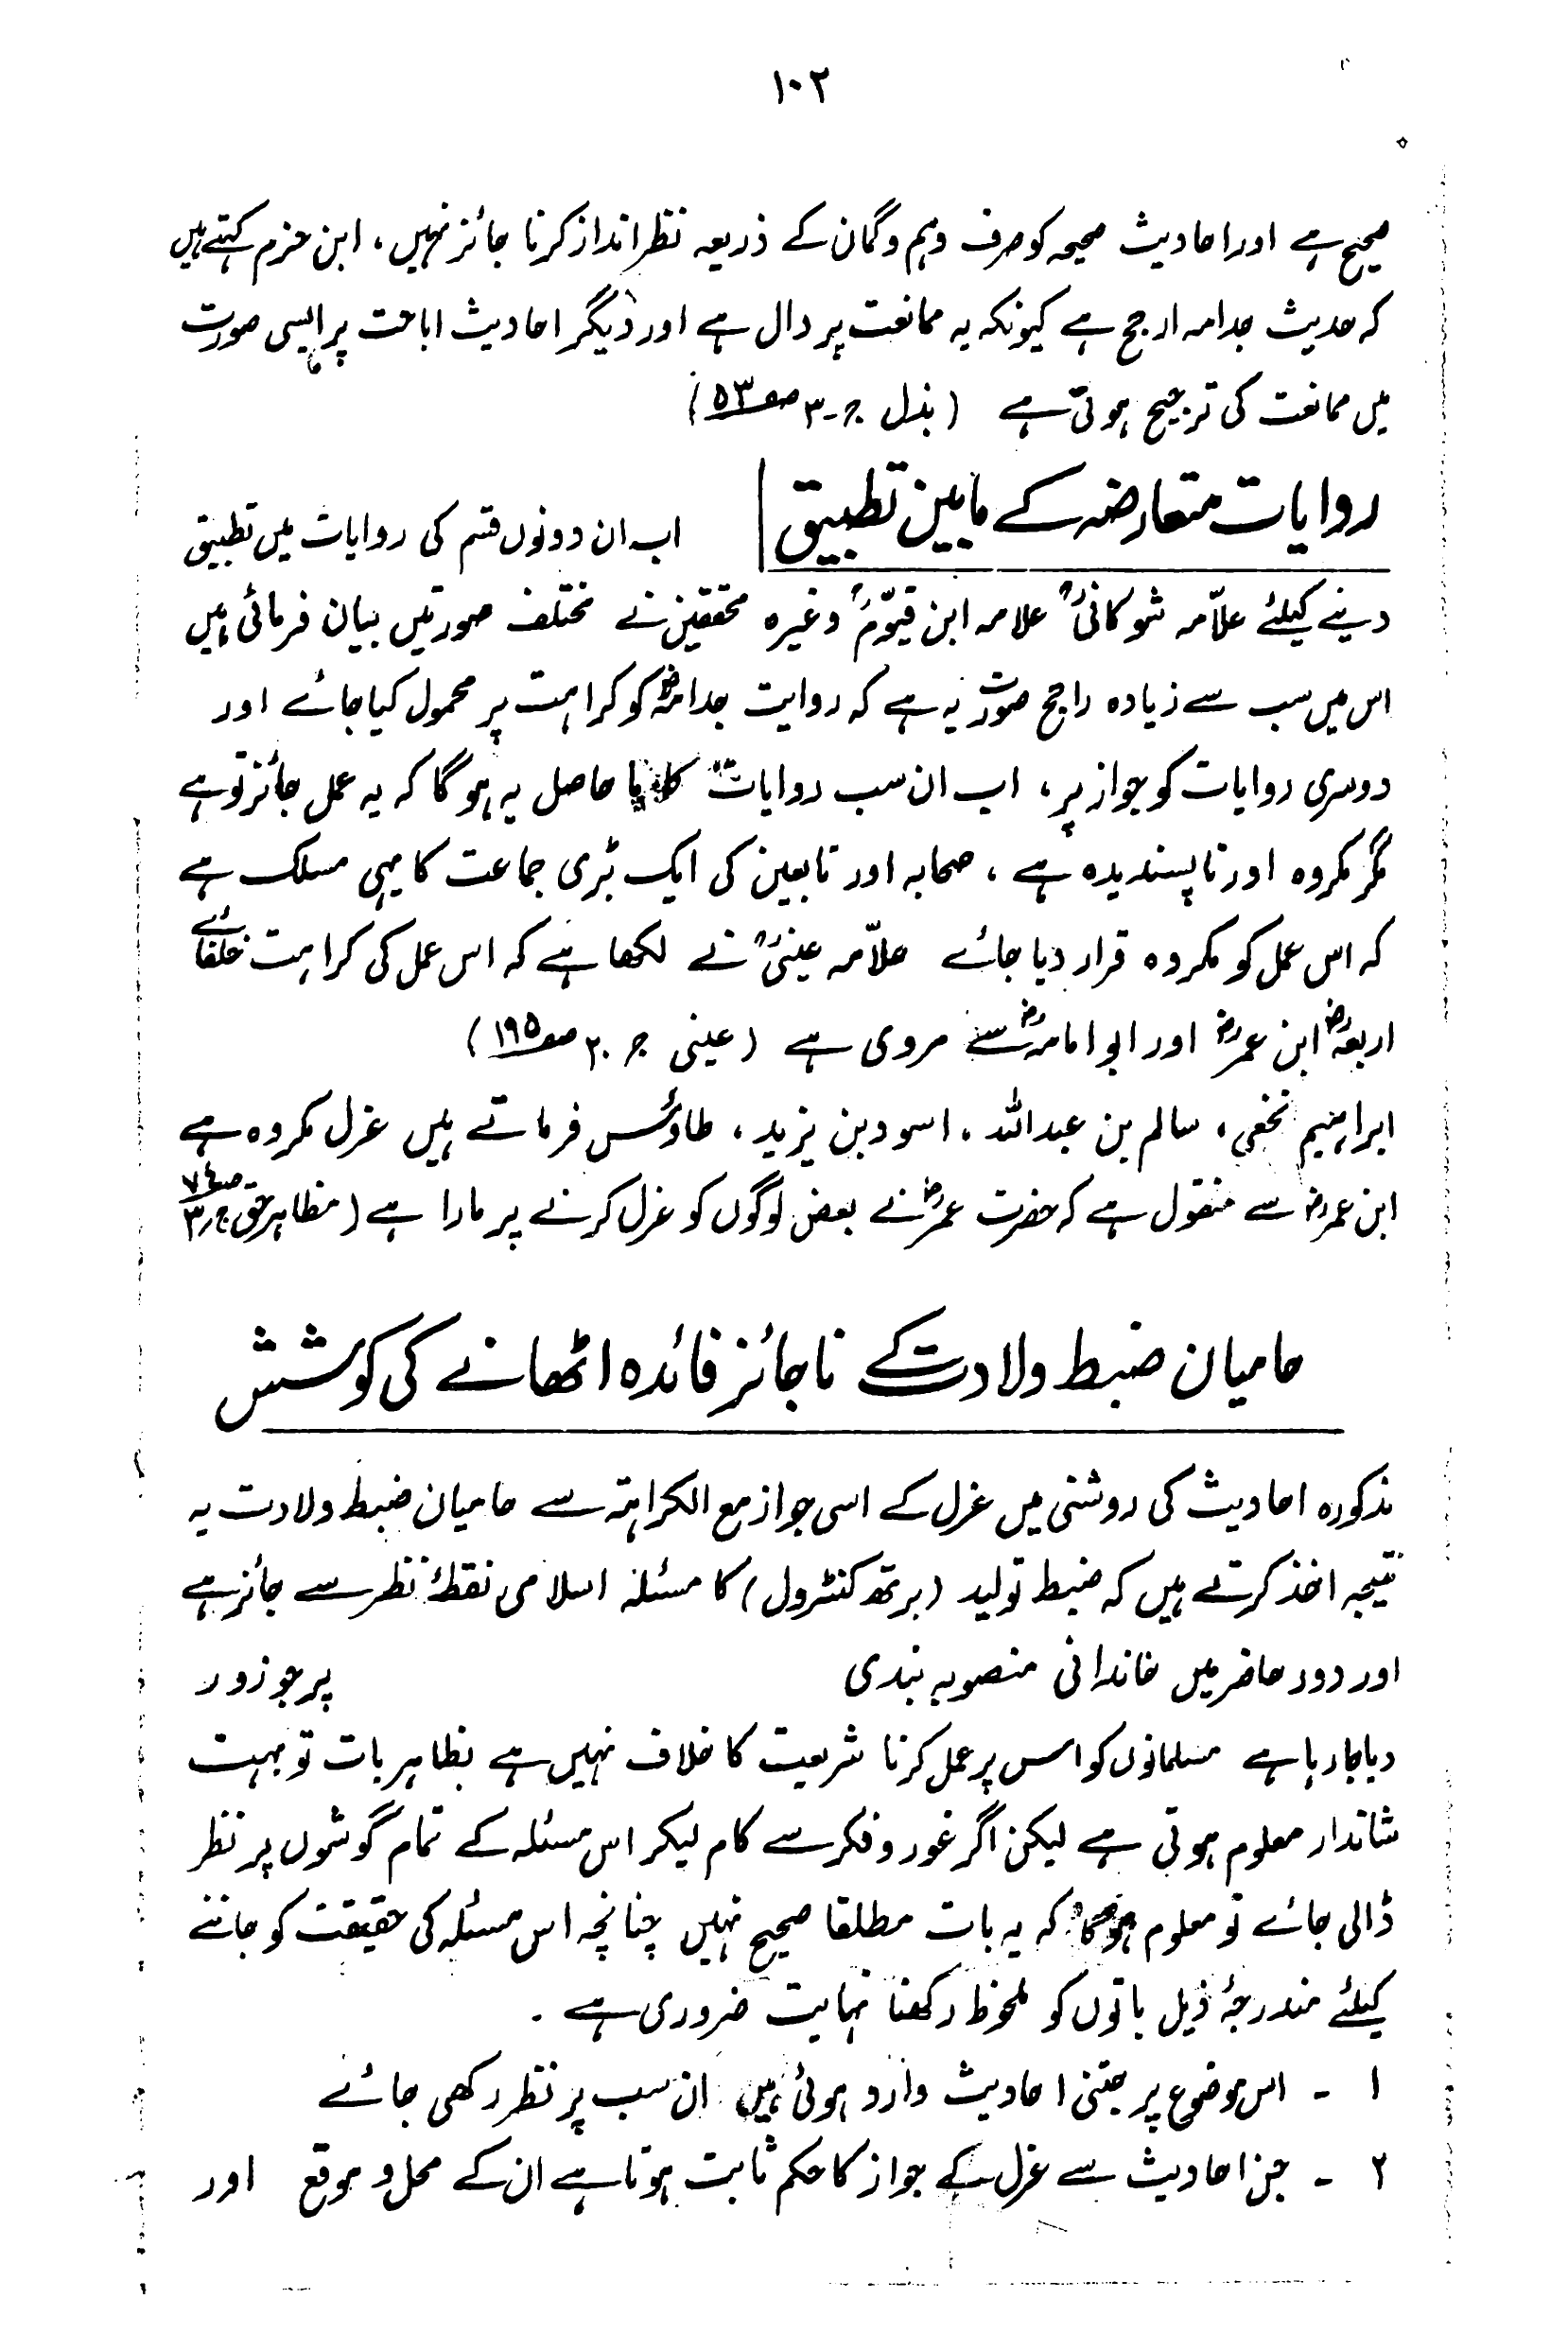 ۱۰۲
صحیح ہے اور احادیث صحیحہ کو صرف وہم و گمان کے ذریعہ نظر انداز کرنا جائز نہیں، ابن حزم کہتے ہیں
کہ حدیث جدامہ ارجح ہے کیونکہ یہ ممانعت پر دال ہے اور دیگر احادیث اباحت پر ایسی صورت
میں ممانعت کی ترجیح ہوتی ہے (بذل ج۔۳ صـ۵۳)
روایات متعارضہ کے مابین تطبیق
اب ان دونوں قسم کی روایات میں تطبیق
دینے کیلئے علّامہ شوکانیؒ علامہ ابن قیّمؒ وغیرہ محققین نے مختلف صورتیں بیان فرمائی ہیں
اس میں سب سے زیادہ راجح صورت یہ ہے کہ روایت جدامہؓ کو کراہت پر محمول کیا جائے اور
دوسری روایات کو جواز پر، اب ان سب روایات کا حاصل یہ ہوگا کہ یہ عمل جائز تو ہے
مگر مکروہ اور ناپسندیدہ ہے، صحابہ اور تابعین کی ایک بڑی جماعت کا یہی مسلک ہے
کہ اس عمل کو مکروہ قرار دیا جائے علّامہ عینیؒ نے لکھا ہے کہ اس عمل کی کراہت خلفائے
اربعہؓ ابن عمرؓ اور ابو امامہؓ سے مروی ہے (عینی ج۔۲۰ صـ۱۹۵)
ابراہیم نخعی، سالم بن عبداللہ، اسود بن یزید، طاؤس فرماتے ہیں عزل مکروہ ہے
ابن عمرؓ سے منقول ہے کہ حضرت عمرؓ نے بعض لوگوں کو عزل کرنے پر مارا ہے (مظاہر حق ج۳
حامیان ضبط ولادت کے ناجائز فائدہ اٹھانے کی کوشش
مذکورہ احادیث کی روشنی میں عزل کے اسی جواز مع الکراہتہ سے حامیان ضبط ولادت یہ
نتیجہ اخذ کرتے ہیں کہ ضبط تولید (برتھ کنٹرول) کا مسئلہ اسلامی نقطۂ نظر سے جائز ہے
اور دور حاضر میں خاندانی منصوبہ بندی پر جو زور
دیا جارہا ہے مسلمانوں کو اس پر عمل کرنا شریعت کا خلاف نہیں ہے بظاہر بات تو بہت
شاندار معلوم ہوتی ہے لیکن اگر غور و فکر سے کام لیکر اس مسئلہ کے تمام گوشوں پر نظر
ڈالی جائے تو معلوم ہوگا کہ یہ بات مطلقا صحیح نہیں چنانچہ اس مسئلہ کی حقیقت کو جاننے
کیلئے مندرجۂ ذیل باتوں کو ملحوظ رکھنا نہایت ضروری ہے ۔
۱ ۔ اس موضوع پر جتنی احادیث وارد ہوئی ہیں ان سب پر نظر رکھی جائے
۲ ۔ جن احادیث سے عزل کے جواز کا حکم ثابت ہوتا ہے ان کے محل و موقع اور